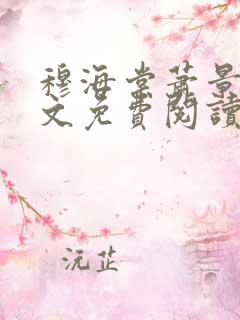 穆海棠萧景
文免費閱讀
沅芷